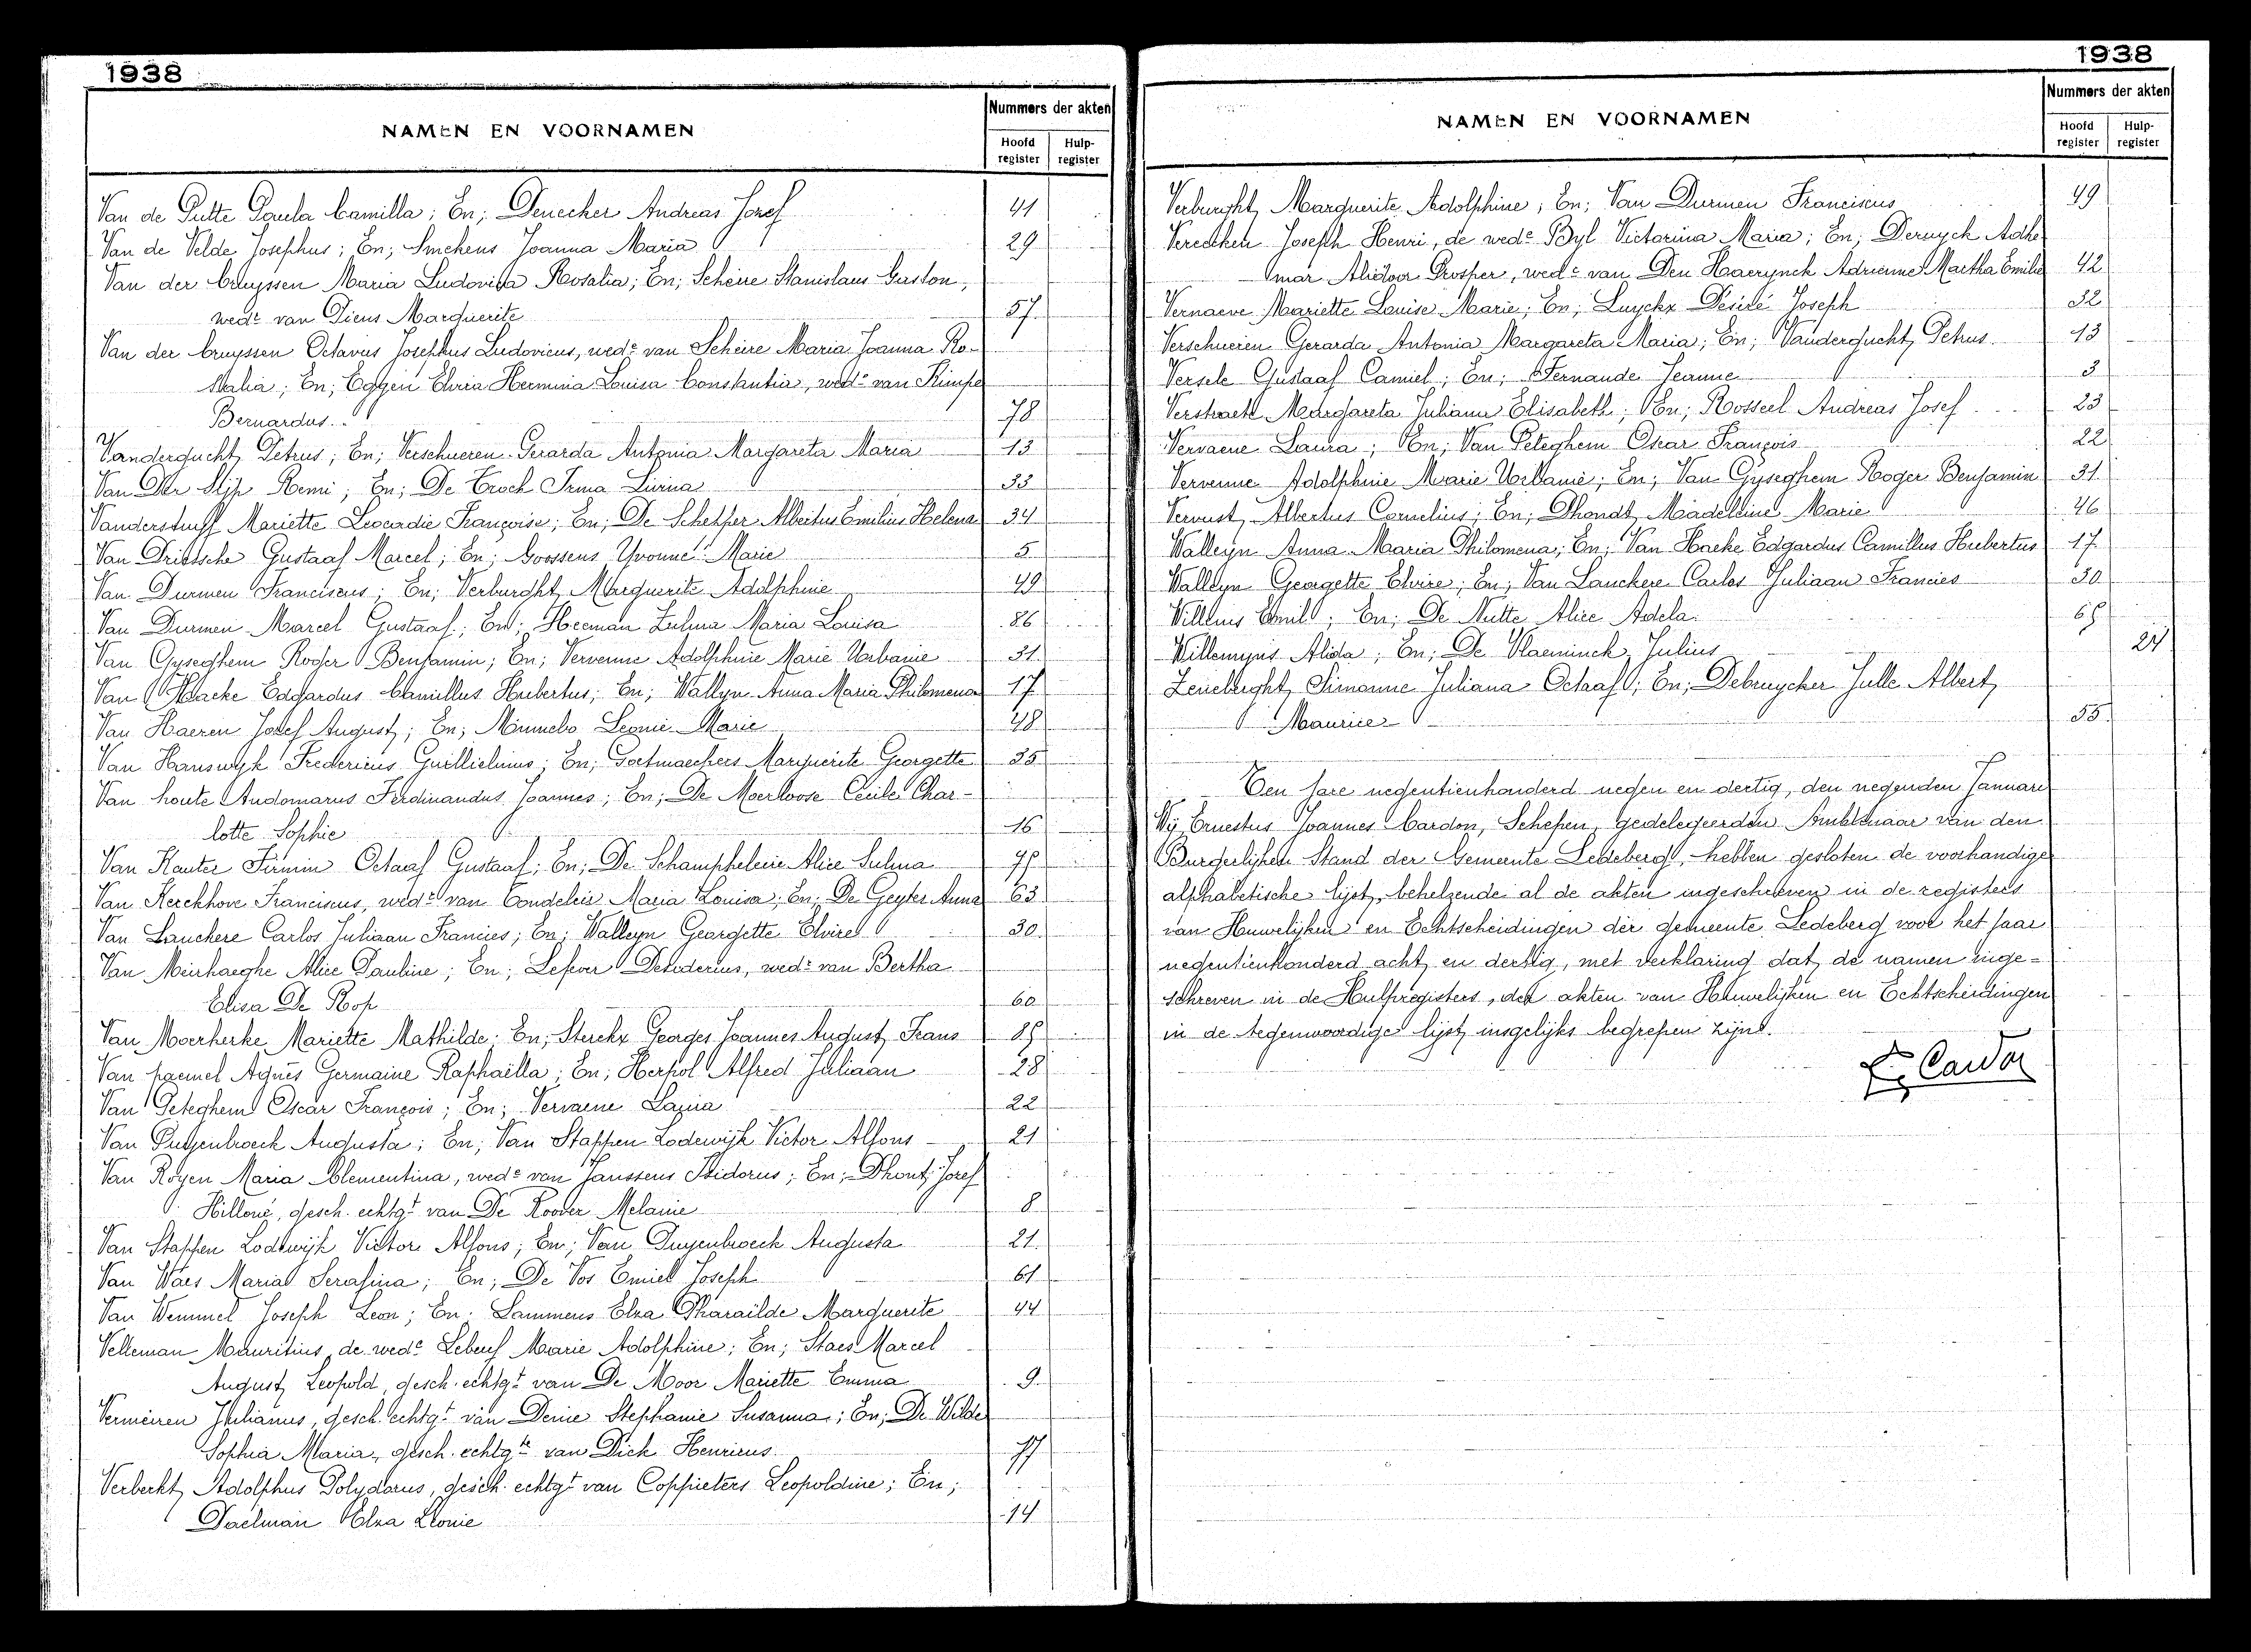 1938
NAMEN EN VOORNAMEN
Nummers der akten
Hoofd register
Hulp-register
Van de Putte Paula Camilla; En; Denecker Andreas Josef 41
Van de Velde Josephus; En; Smekens Joanna Maria 29
Van der Cruyssen Maria Ludovica Rosalia; En; Scheire Stanislaus Gaston,
wedr van Dieus Marguerite 57
Van der Cruyssen Octavus Josephus Ludovicus, wedr van Scheire Maria Joanna Ro-
salia; En; Eggen Elvira Herminia Louisa Constantia, wede van Rimpe
Bernardus 78
Vandergucht Petrus; En; Verschueren Gerarda Antonia Margareta Maria 13
Van Der Slijp Remi; En; De Croock Irma Livina 33
Vanderstuyff Mariette Leocardie Françoise; En; De Schepper Albertus Emilius Helena 34
Van Driessche Gustaaf Marcel; En; Goossens Yvonne Marie 5
Van Durmen Franciscus; En; Verburght Marguerite Adolphine 49
Van Durmen Marcel Gustaaf; En; Heeman Zulma Maria Louisa 86
Van Gyseghem Roger Benjamin; En; Vervenne Adolphine Marie Urbanie 31
Van Haeke Edgardus Camillus Hubertus; En; Walleyn Anna Maria Philomena 17
Van Haeren Josef August; En; Minnebo Leonie Marie 48
Van Hanswyk Fredericus Guillielmus; En; Goetmaeckers Marguerite Georgette 35
Van houte Audomarus Ferdinandus Joannes; En; De Moerloose Cecile Char-
lotte Sophie 16
Van Kauter Firmin Octaaf Gustaaf; En; De Schampheleire Alice Sulma 75
Van Kerckhove Franciscus, wedr van Condeleis Maria Louisa; En; De Geyter Anna 63
Van Lanckere Carlos Juliaan Francies; En; Walleyn Georgette Elvire 30
Van Meirhaeghe Alice Pauline; En; Lefever Desiderius, wedr van Bertha
Elisa De Rop 60
Van Moerkerke Mariette Mathilde; En; Sterckx Georges Joannes August Frans 85
Van paemel Agnès Germaine Raphaëlla; En; Herpol Alfred Juliaan 28
Van Peteghem Oscar François; En; Vervaene Laura 22
Van Puyenbroeck Augusta; En; Van Stappen Lodewijk Victor Alfons 21
Van Royen Maria Clementina, wede van Janssens Isidorus; En; Dhont Josef
Hilloné, gesch. echtgt van De Roover Melanie 8
Van Stappen Lodewijk Victor Alfons; En; Van Puyenbroeck Augusta 21
Van Waes Maria Serafina; En; De Vos Emiel Joseph 61
Van Wemmel Joseph Leon; En; Lammens Elza Pharaïlde Marguerite 44
Velleman Mauritius, de wede Lebeuf Marie Adolphine; En; Staes Marcel
August Leopold, gesch. echtgt van De Moor Mariette Emma 9
Vermeiren Julianus, gesch. echtgt van Denie Stephanie Susanna; En; De Wilde
Sophia Maria, gesch. echtgte van Dick Henricus 77
Verbeckt Adolphus Polydorus, gesch. echtgt van Coppieters Leopoldine; En;
Daelman Elza Leonie 14
1938
NAMEN EN VOORNAMEN
Nummers der akten
Hoofd register
Hulp-register
Verburght Marguerite Adolphine; En; Van Durmen Franciscus 49
Verecken Joseph Henri, de wede Byl Victorina Maria; En; Deruyck Adhe
mar Alidoor Prosper, wedr van Den Haerynck Adrienne Martha Emilie 42
Vernaeve Mariette Louise Marie; En; Luyckx Desiré Joseph 32
Verschueren Gerarda Antonia Margareta Maria; En; Vandergucht Petrus 13
Versele Gustaaf Camiel; En; Fernande Jeanne 3
Verstraete Margareta Juliana Elisabeth; En; Rosseel Andreas Josef 23
Vervaene Laura; En; Van Peteghem Oscar François 22
Vervenne Adolphine Marie Urbanie; En; Van Gyseghem Roger Benjamin 31
Vervust Albertus Cornelius; En; Dhondt Madeleine Marie 46
Walleyn Anna Maria Philomena; En; Van Haeke Edgardus Camillus Hubertus 17
Walleyn Georgette Elvire; En; Van Lanckere Carlos Juliaan Francies 30
Willems Emil; En; De Nutte Alice Adela 65
Willemyns Alida; En; De Vlaeminck Julius 24
Simonne Juliana Octaaf; En; Debruycker Julle Albert
Maurice 55
Ten jare negentienhonderd negen en dertig, den negenden Januari
Wij Ernestus Joannes Cardon, Schepen, gedelegeerden Ambtenaar van den
Burgerlijken Stand der Gemeente Ledeberg, hebben gesloten de voorhandige
alphabetische lijst, behelzende al de akten ingeschreven in de registers
van Huwelijken en Echtscheidingen der gemeente Ledeberg voor het jaar
negentienhonderd acht en dertig, met verklaring dat de namen inge-
schreven in de Hulpregisters, der akten van Huwelijken en Echtscheidingen
in de tegenwoordige lijst insgelijks begrepen zijn.
E. Cardon